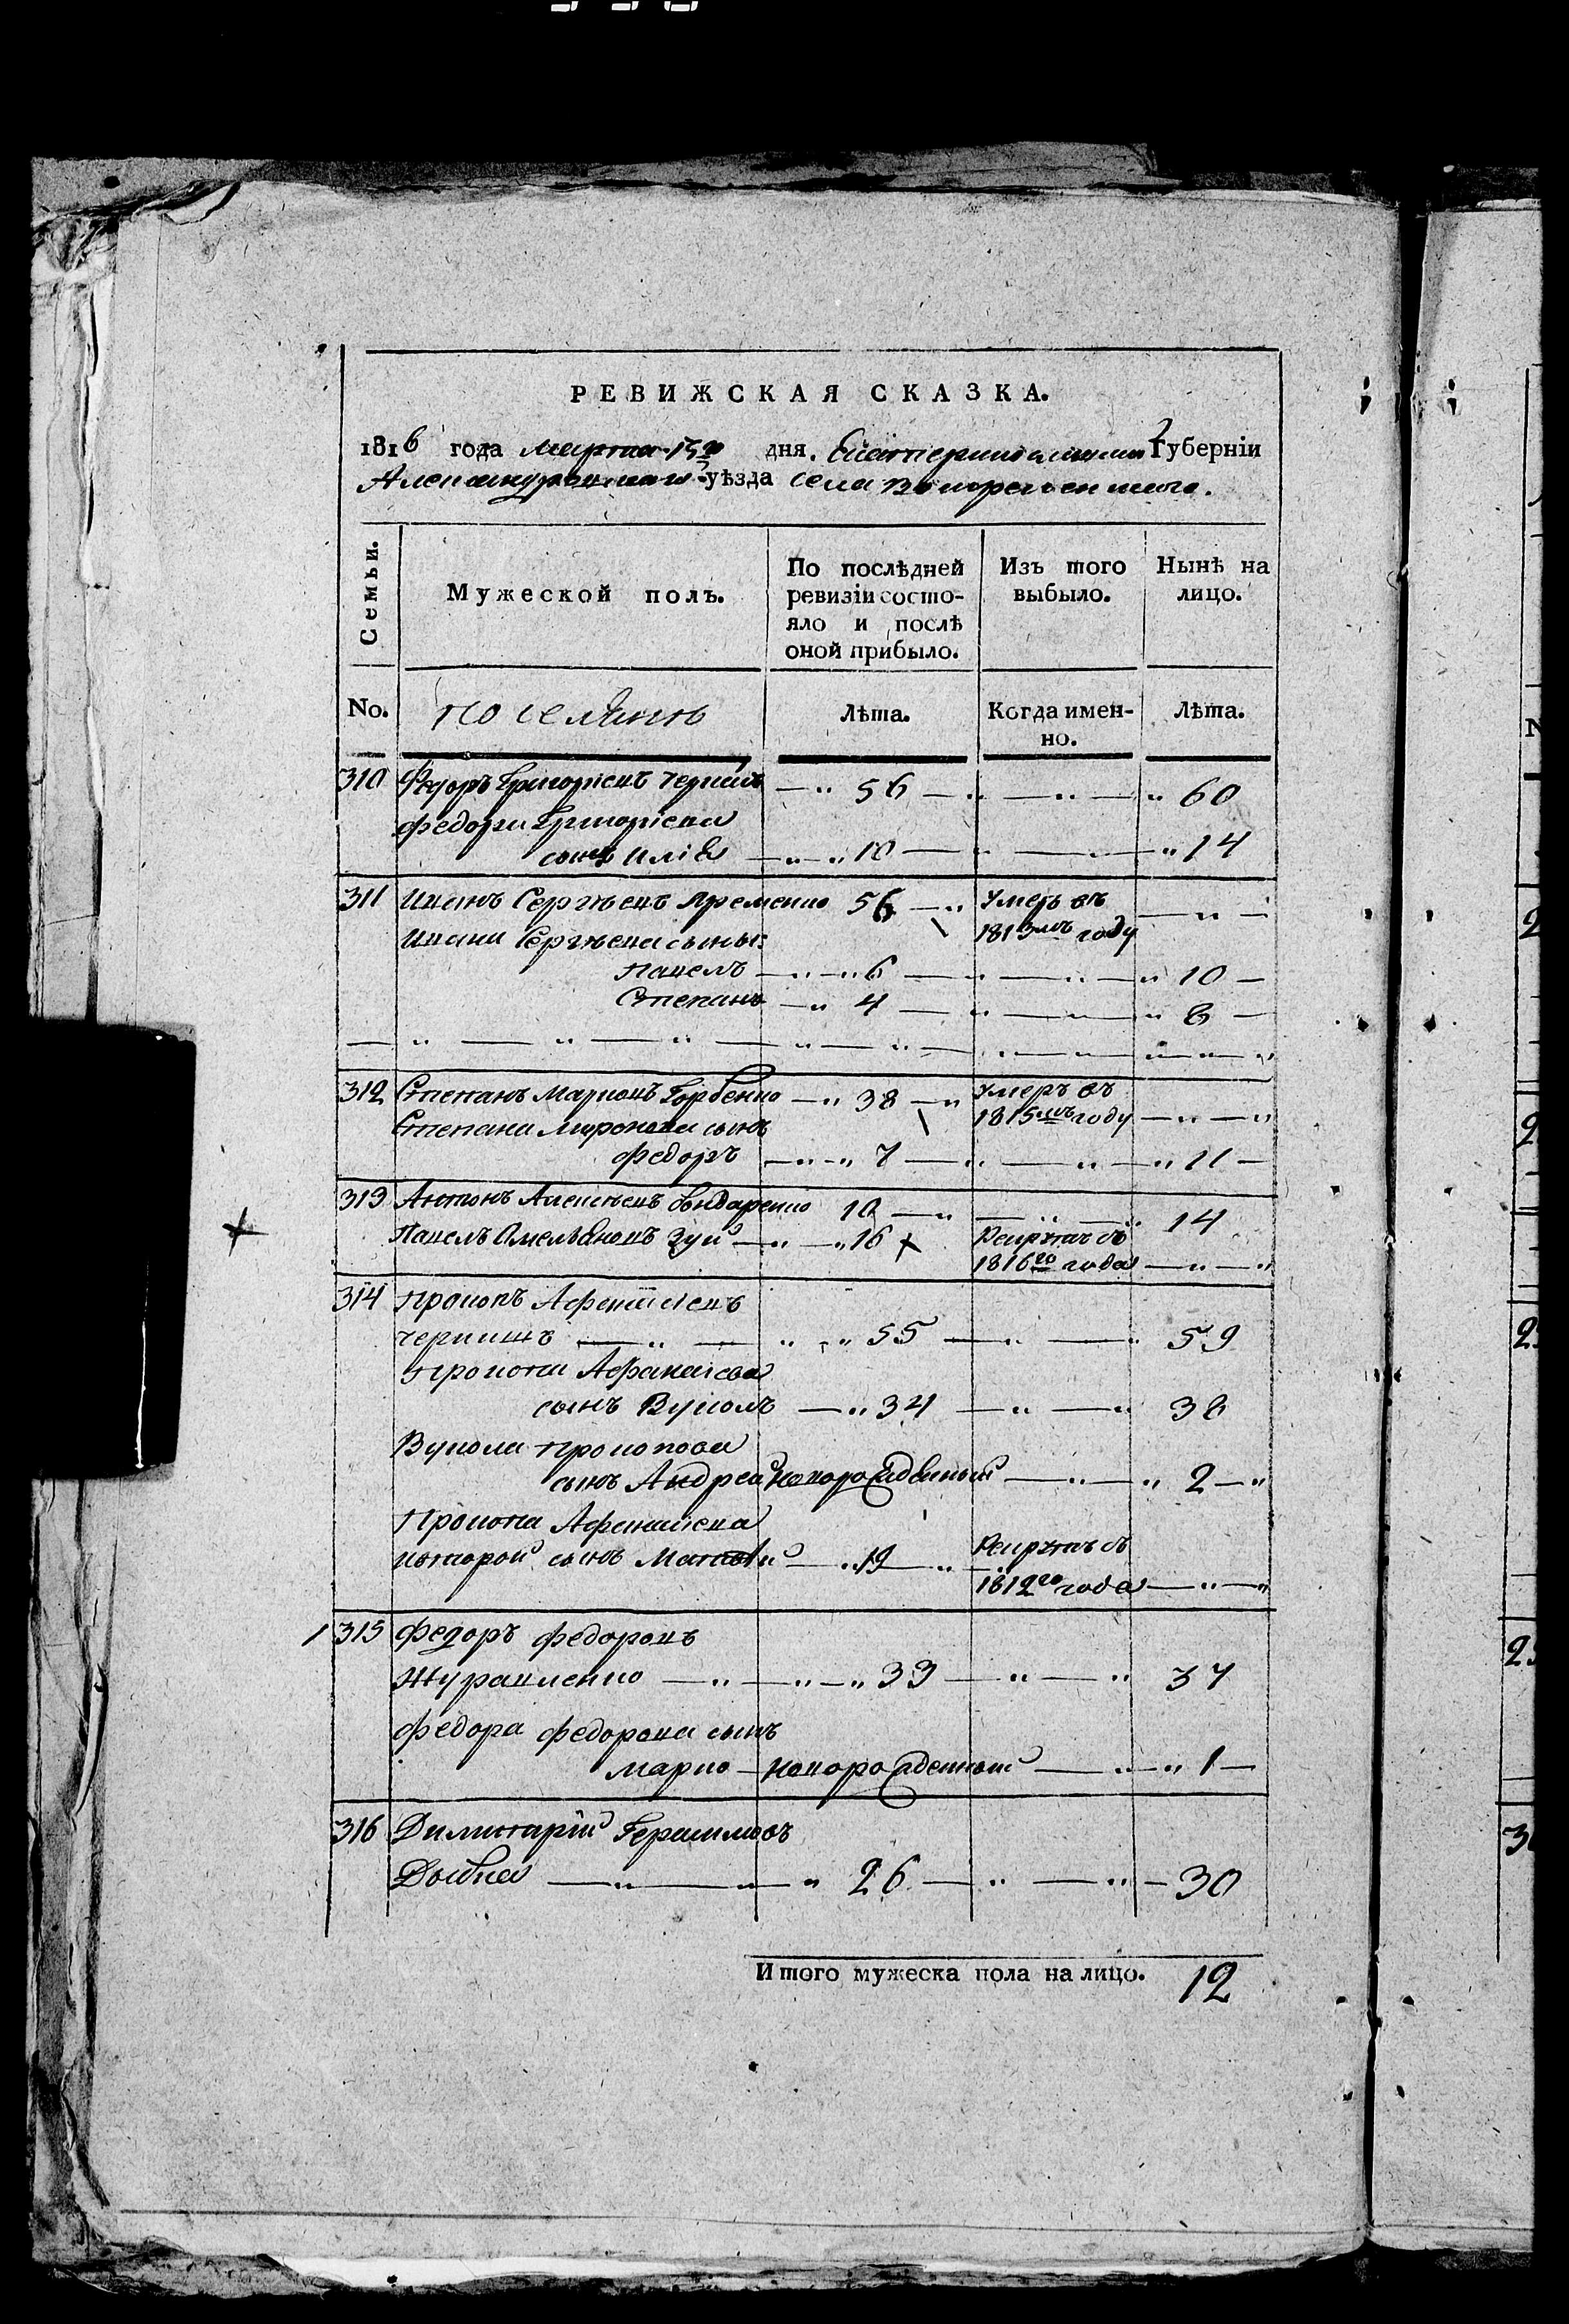 РЕВИЖСКАЯ СКАЗКА.
1816 года марта 15 дня. Екатеринославской Губерніи
Александровскаго уѣзда села Воскресенскаго.
Семьи.
Мужеской полъ.
По послѣдней ревизіи состояло и послѣ оной прибыло.
Изъ того выбыло.
Нынѣ на лицо.
No.
поселянъ
Лѣта.
Когда именно.
Лѣта.
310 Федоръ Григориевъ 56 — „ — „ — „ 60
Федора Григориева
сынъ Илія — „ — „ 10 — „ — „ — „ 14
311 Иванъ Сергѣевъ Яременко 56 — „ Умеръ въ — „ —
Ивана Сергѣева сыны: 1813мъ году
Павелъ — „ — „ 6 — „ — „ — „ 10 —
Степанъ — „ 4 — „ — „ — „ 8 —
312 Степанъ Марковъ Горбенко — „ 38 — „ Умеръ въ
Степана сынъ 1815мъ году — „ — „
Федоръ — „ — „ 7 — „ — „ — „ 11 —
313 Антонъ Алексѣевъ Бондаренко 10 — „ — „ — „ 14
Павелъ Омельяновъ Зуй — „ — „ 16 Рекрутъ съ
1816го года — „ — „
314 Прокопъ Афанасіевъ
— „ — „ „ 55 — „ — „ 59
Прокопа Афанасіева
сынъ Вуколъ — „ 34 — „ — „ 38
Вукола Прокопова
сынъ Андрей новорожденный — „ — „ 2 — „
Прокопа Афанасіева
второй сынъ Матвѣй — „ 19 — „ Рекрутъ съ
1812го года — „ — „
315 Федоръ Федоровъ
Журавленко — „ — „ — „ 33 — „ — „ 37
Федора Федорова сынъ
Марко — новорожденный — „ — „ 1 —
316 Герасимовъ
— „ — „ — „ 26 — „ — „ — 30
Итого мужеска пола на лицо. 12